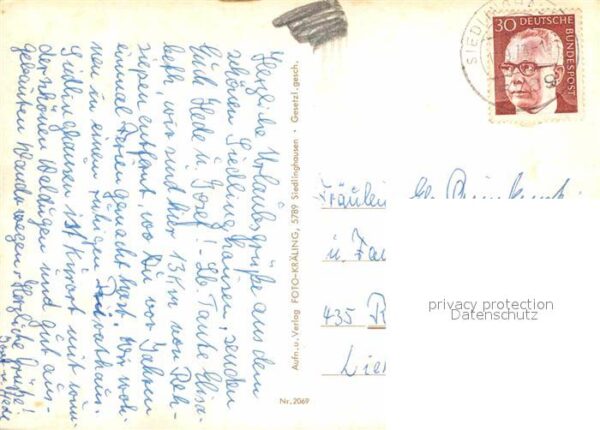 Herzliche Urlaubsgrüße aus dem
schönen Siedlinghausen, senden
Euch Hede u. Josef! - Lb. Tante Elisa-
beth, wir sind hier 13 Km von Reh-
siepen entfernt, wo Du vor Jahren
einmal Ferien gemacht hast. Wir woh-
nen in einem ruhigen Privathaus.
Siedlinghausen ist Kurort mit wun-
derschönen Waldungen und gut aus-
gebauten Wanderwegen. Herzliche Grüße!
Josef u. Hede
Aufn. u. Verlag FOTO-KRÄLING, 5789 Siedlinghausen · Gesetzl. gesch.
Nr. 2069
SIEDLINGHA
30 DEUTSCHE
BUNDESPOST
Fräulein
u.
435
privacy protection
Datenschutz